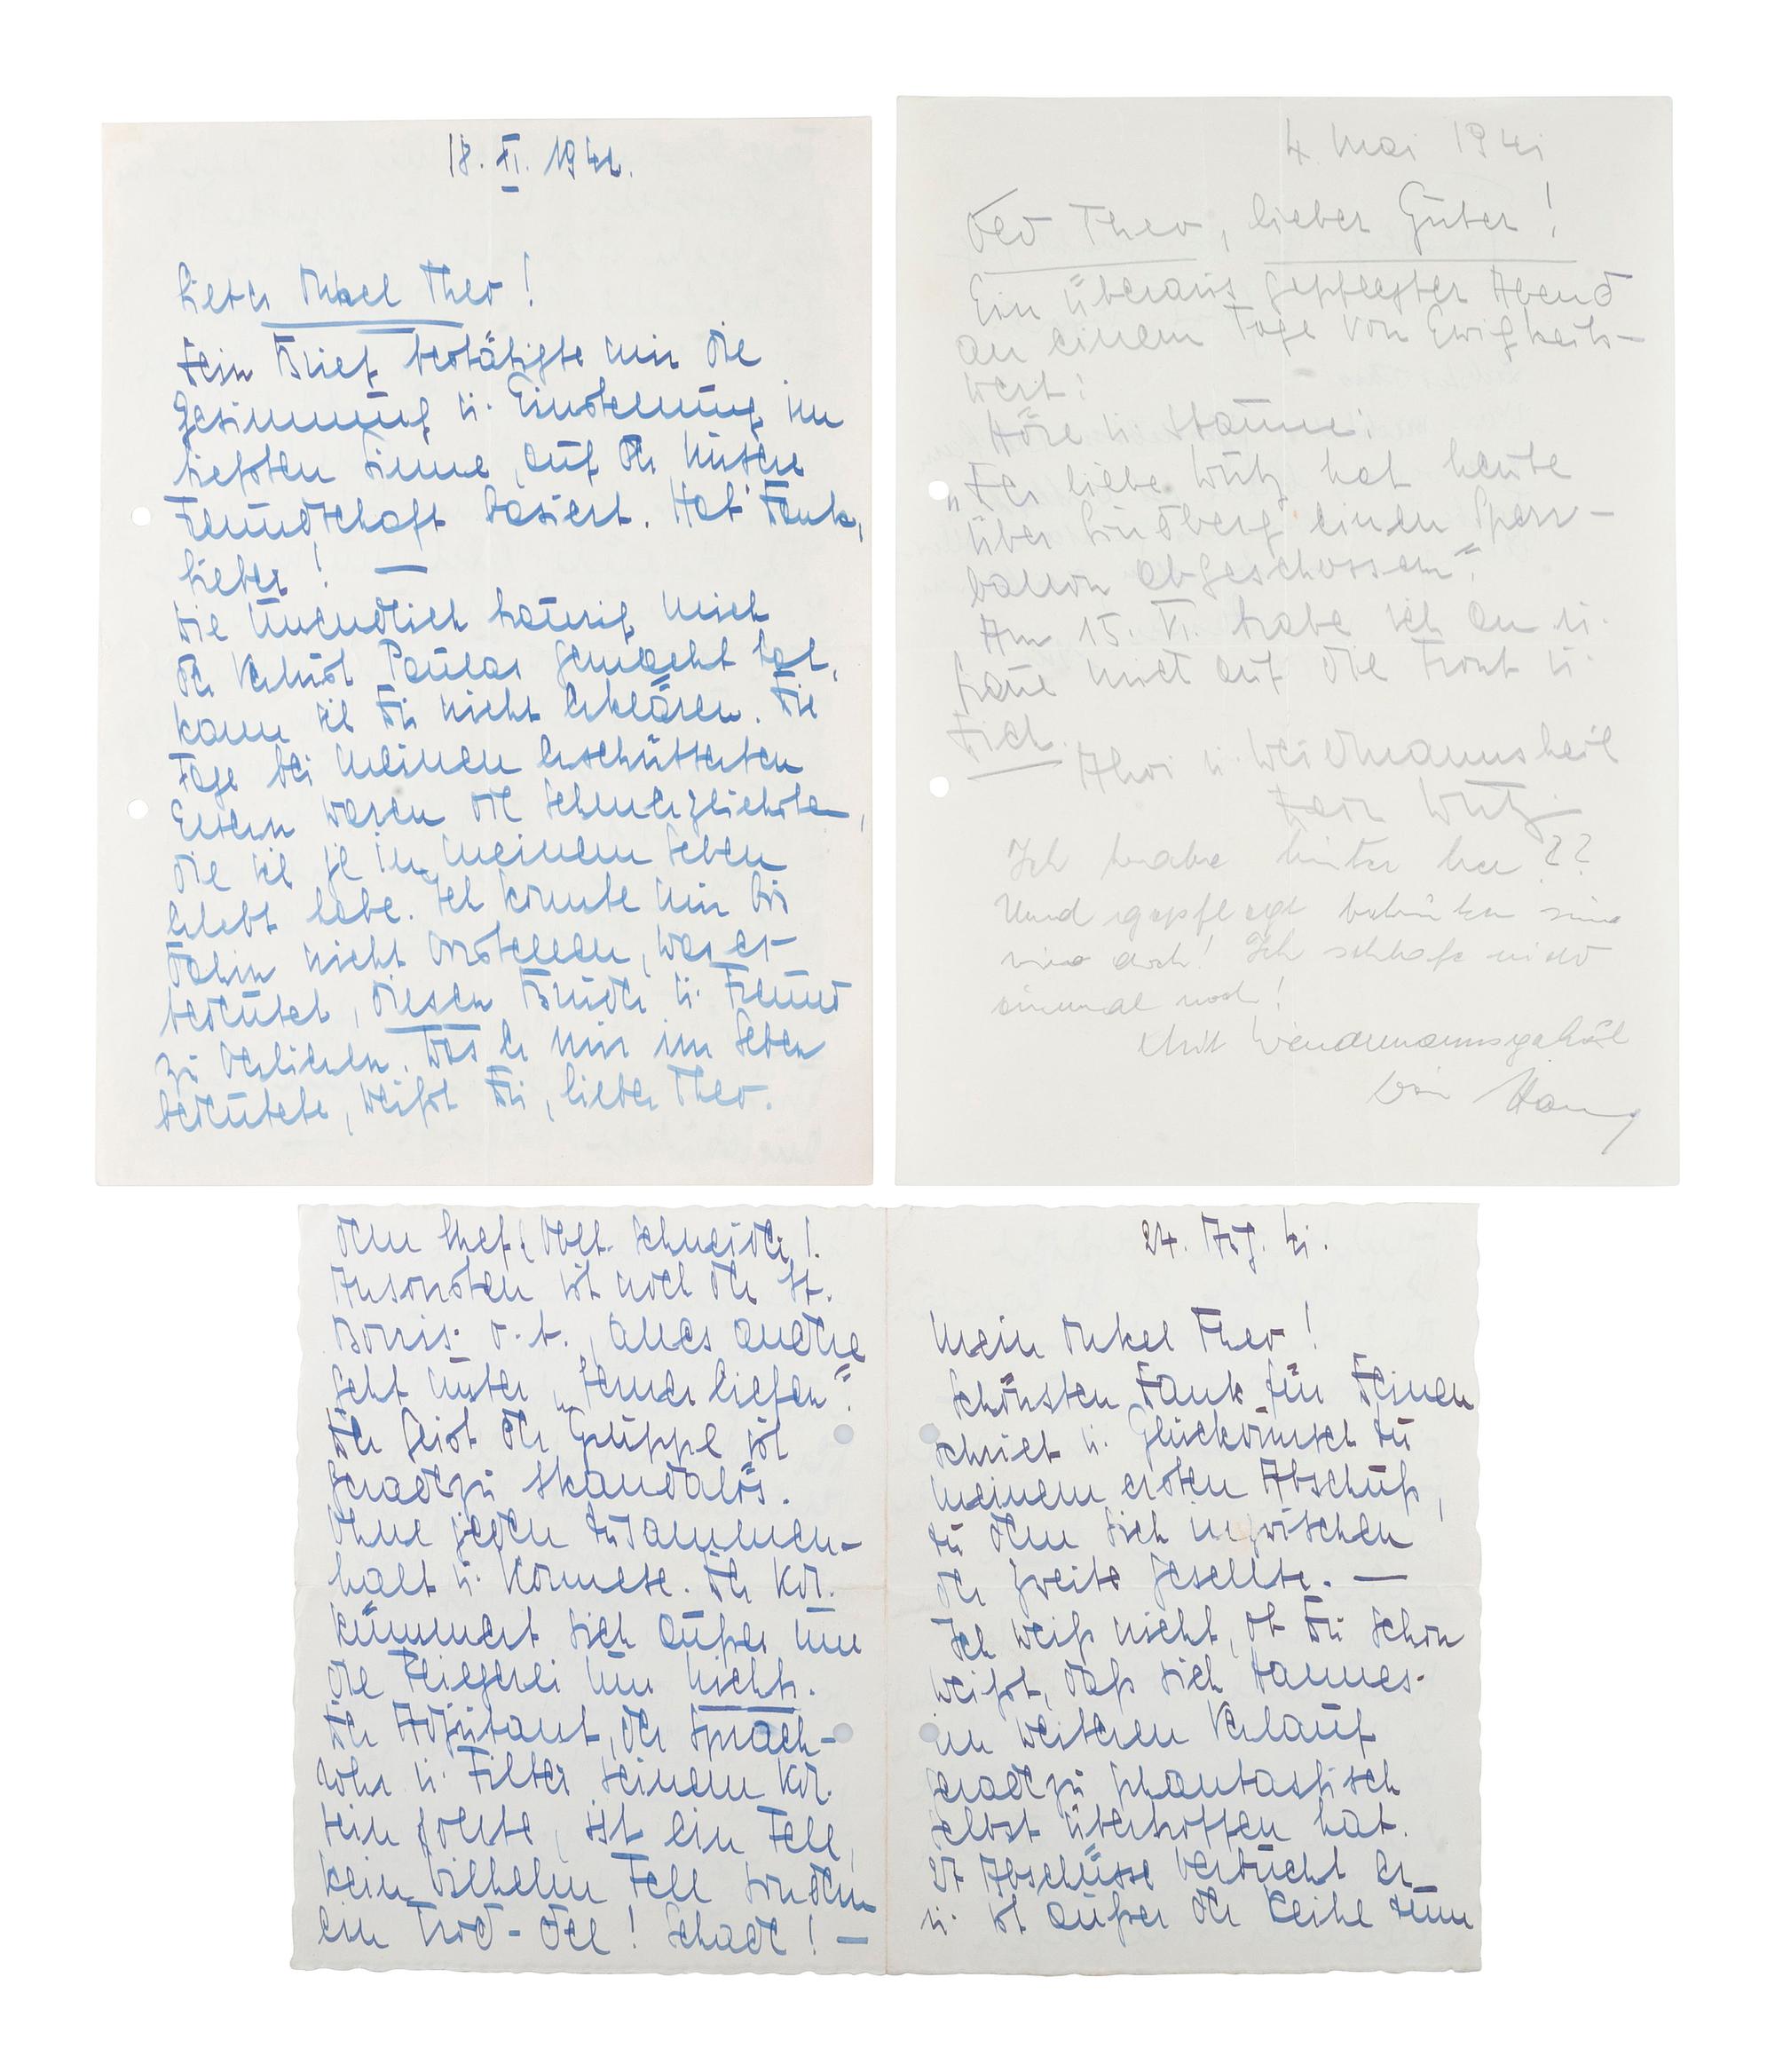 18. VI. 1941.
Lieber Onkel Theo!
Dein Brief bestätigte mir die
Gesinnung u. Einstellung im
tiefsten Sinne, auf der unsere
Freundschaft basiert. Hab' Dank,
Lieber! —
Wie unendlich traurig mich
der Verlust Paulas gemacht hat,
kann ich Dir nicht erklären. Die
Tage bei meinen erschütterten
Eltern waren die schmerzlichsten,
die ich je in meinem Leben
erlebt habe. Ich konnte mir bis
dahin nicht vorstellen, was es
bedeutet, diesen Bruder u. Freund
zu verlieren. Was er mir im Leben
bedeutete, weißt Du, lieber Theo.
4. Mai 1941
Theo, lieber Guter!
Ein überaus gepflegter Abend
an einem Tage von Ewigkeits-
wert:
Höre u. staune:
„Der liebe Wutz hat heute
über einen Sperr-
ballon abgeschossen".
Am 15. VI. trabe ich an u.
freue mich auf die Front u.
Dich.
Ahoi u. Weidmannsheil
Dein Wutz
Ich trabe hinter her??
Und gepflegt
wir doch! Ich schlafe nicht
einmal noch!
Mit Weidmannsgeheul
Dein
dem Chef: Oblt. Schneider!
Ansonsten ist noch der St.
Borris. o.k., alles andere
geht unter „ferner liefen".
Der Geist der Gruppe ist
geradezu skandalös.
Ohne jeden Zusammen-
halt u. Kommese. Der Kdr.
kümmert sich außer um
die Fliegerei um nichts.
Der Adjutant, der Sprach-
rohr u. Filter seinem Kdr.
sein sollte, ist ein Tell,
kein Wilhelm Tell sondern
ein Trod-del! Schade! —
24. Aug. 41.
Mein Onkel Theo!
Schönsten Dank für Deinen
Schrieb u. Glückwunsch zu
meinem ersten Abschuß,
zu dem sich inzwischen
der zweite gesellte. —
Ich weiß nicht, ob Du schon
weißt, daß sich Hannes
im weiteren Verlauf
geradezu phantastisch
selbst übertroffen hat.
27 Abschüsse verbucht er
u. ist außer der Reihe zum